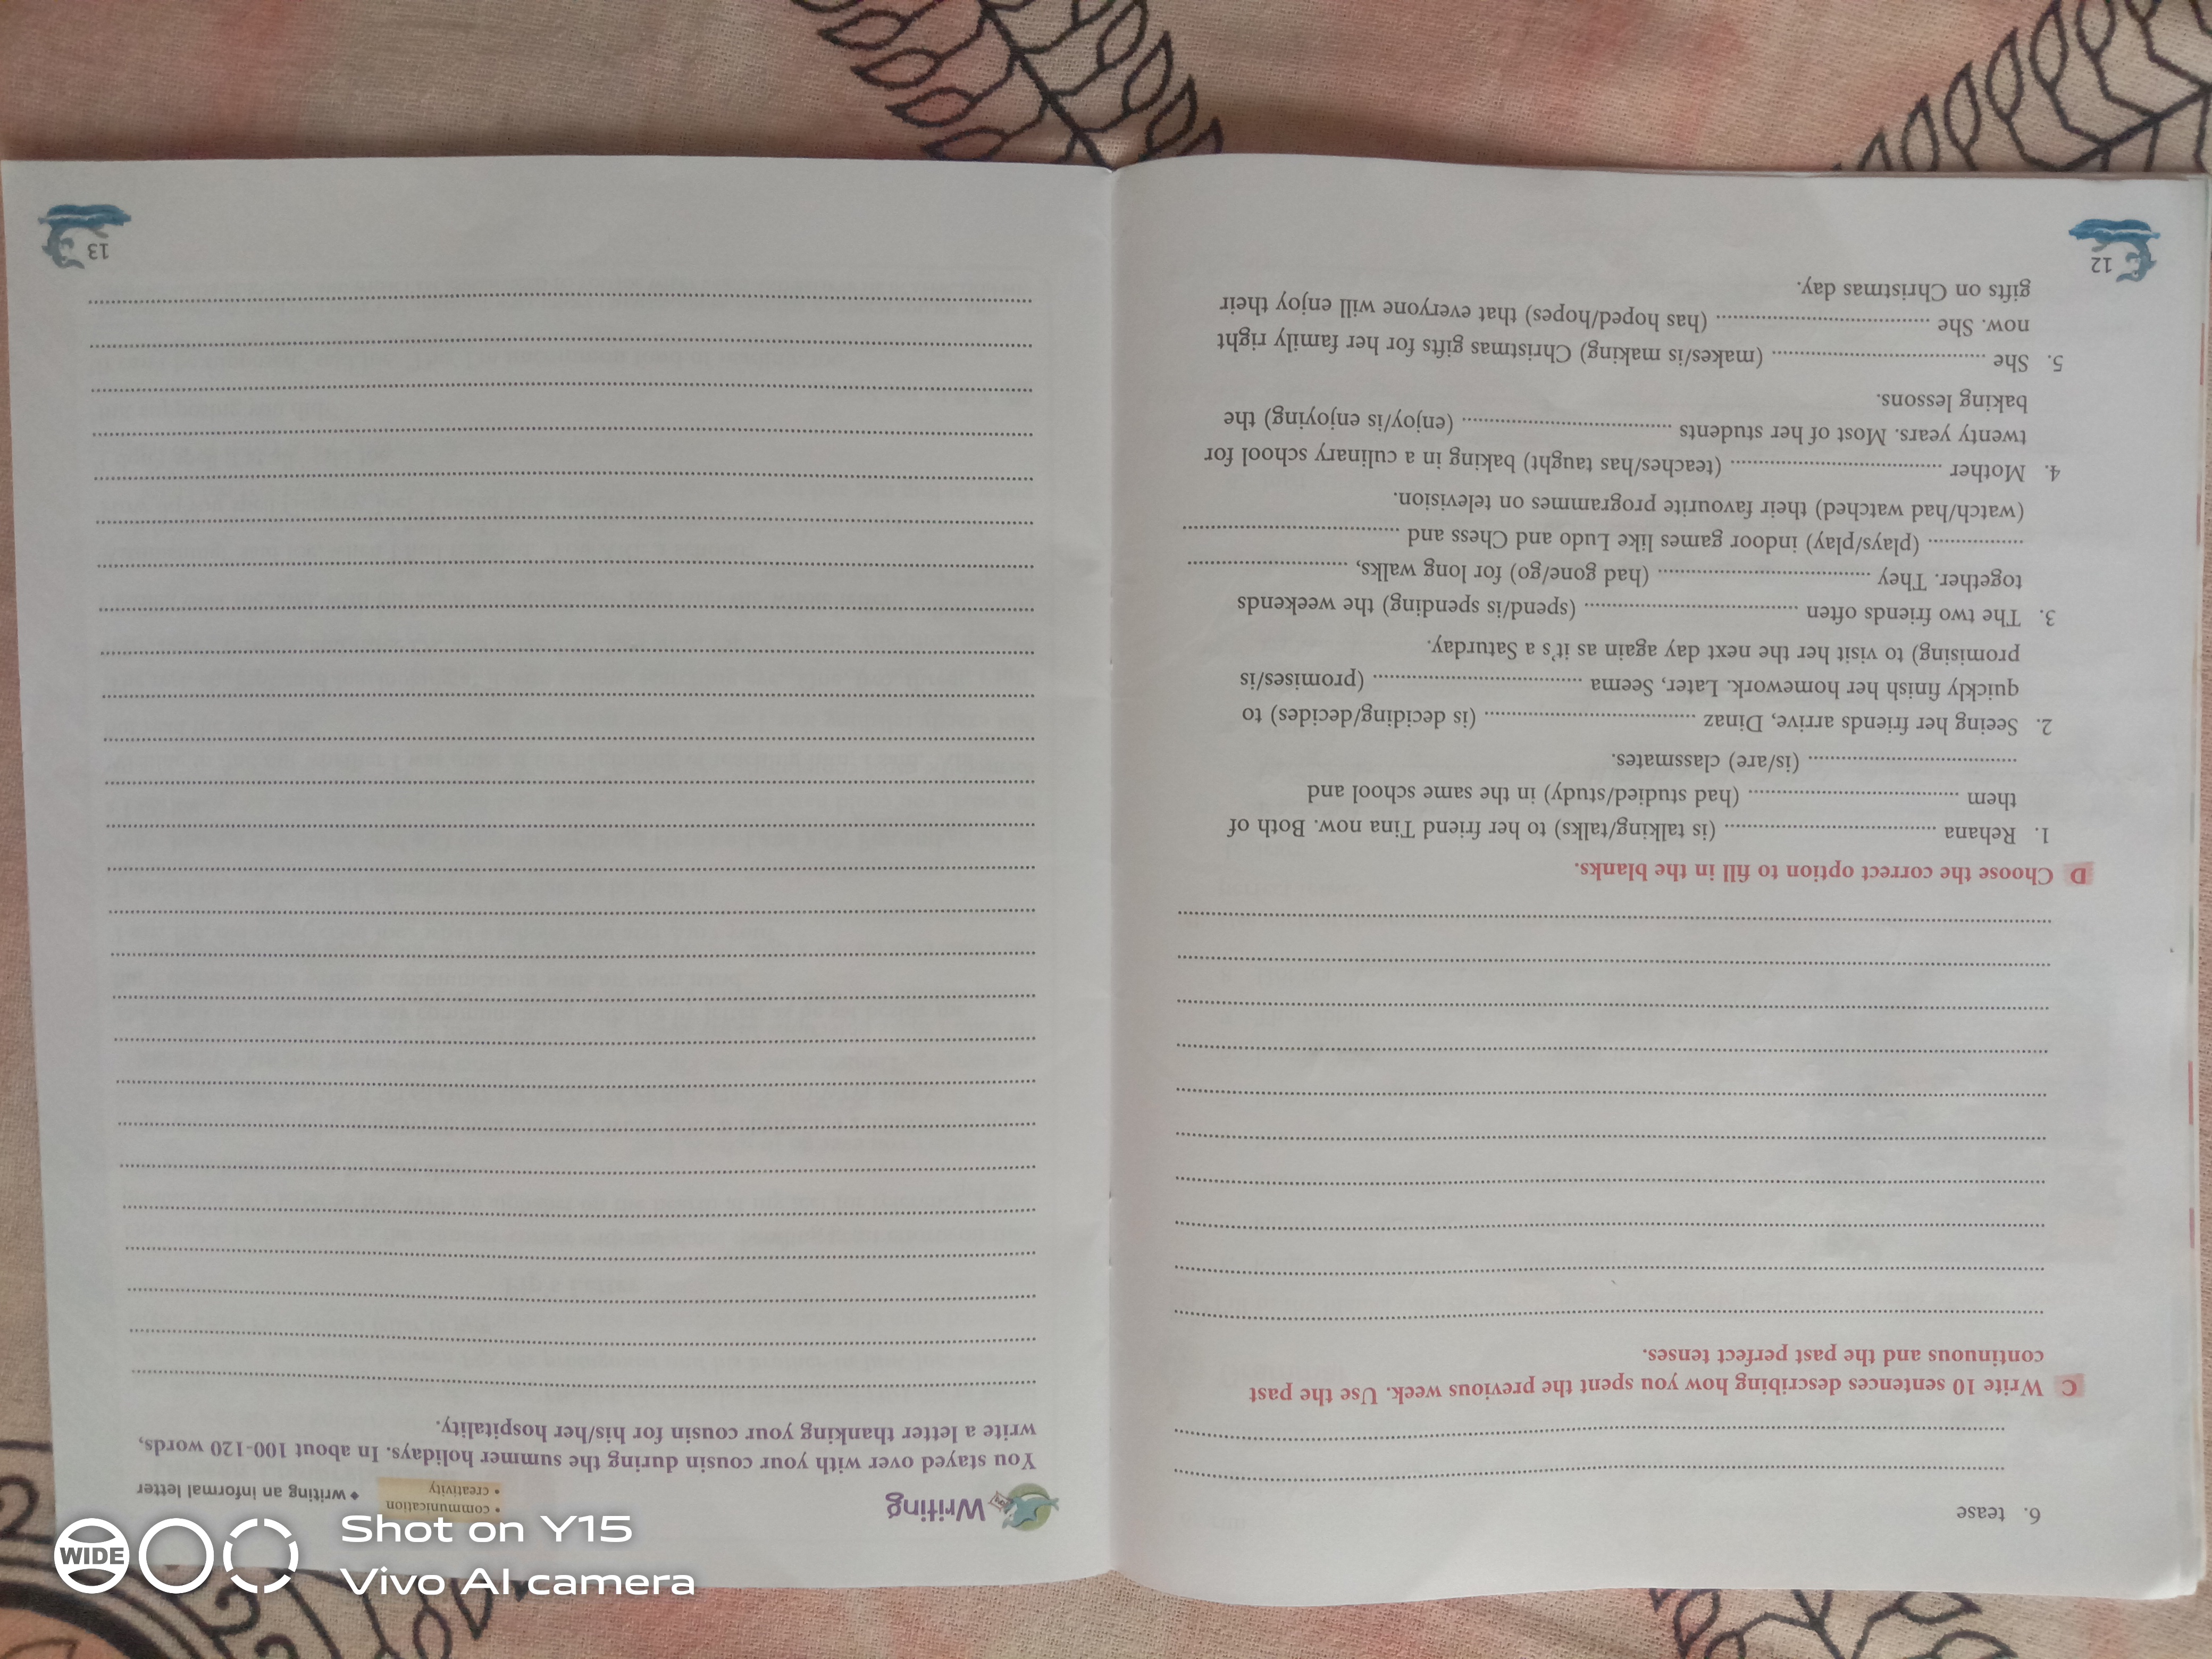 6. tease
C Write 10 sentences describing how you spent the previous week. Use the past
continuous and the past perfect tenses.
D Choose the correct option to fill in the blanks.
1. Rehana ........................................ (is talking/talks) to her friend Tina now. Both of
them ........................................ (had studied/study) in the same school and
........................................ (is/are) classmates.
2. Seeing her friends arrive, Dinaz ........................................ (is deciding/decides) to
quickly finish her homework. Later, Seema ........................................ (promises/is
promising) to visit her the next day again as it's a Saturday.
3. The two friends often ........................................ (spend/is spending) the weekends
together. They ........................................ (had gone/go) for long walks, ..............................
.................. (plays/play) indoor games like Ludo and Chess and ........................................
(watch/had watched) their favourite programmes on television.
4. Mother ........................................ (teaches/has taught) baking in a culinary school for
twenty years. Most of her students ........................................ (enjoy/is enjoying) the
baking lessons.
5. She ........................................ (makes/is making) Christmas gifts for her family right
now. She ........................................ (has hoped/hopes) that everyone will enjoy their
gifts on Christmas day.
12
Writing
• communication
• creativity
♦ writing an informal letter
You stayed over with your cousin during the summer holidays. In about 100-120 words,
write a letter thanking your cousin for his/her hospitality.
13
WIDE
Shot on Y15
Vivo AI camera